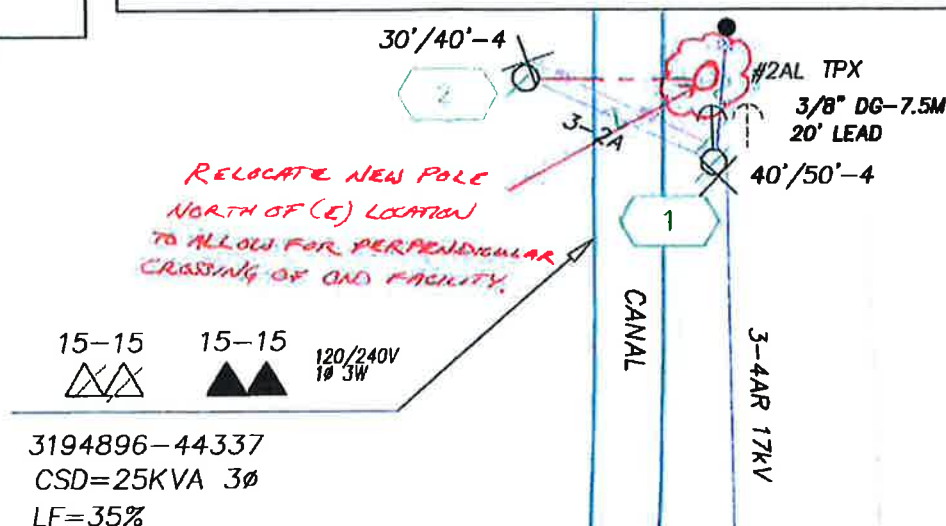 30'/40'-4
2
#2AL TPX
3/8" DG-7.5M
20' LEAD
3-2A
40'/50'-4
1
RELOCATE NEW POLE
NORTH OF (E) LOCATION
TO ALLOW FOR PERPENDICULAR
CROSSING OF OID FACILITY.
CANAL
3-4AR 17kV
15-15
15-15
120/240V
1ø 3W
3194896-44337
CSD=25KVA 3ø
LF=35%